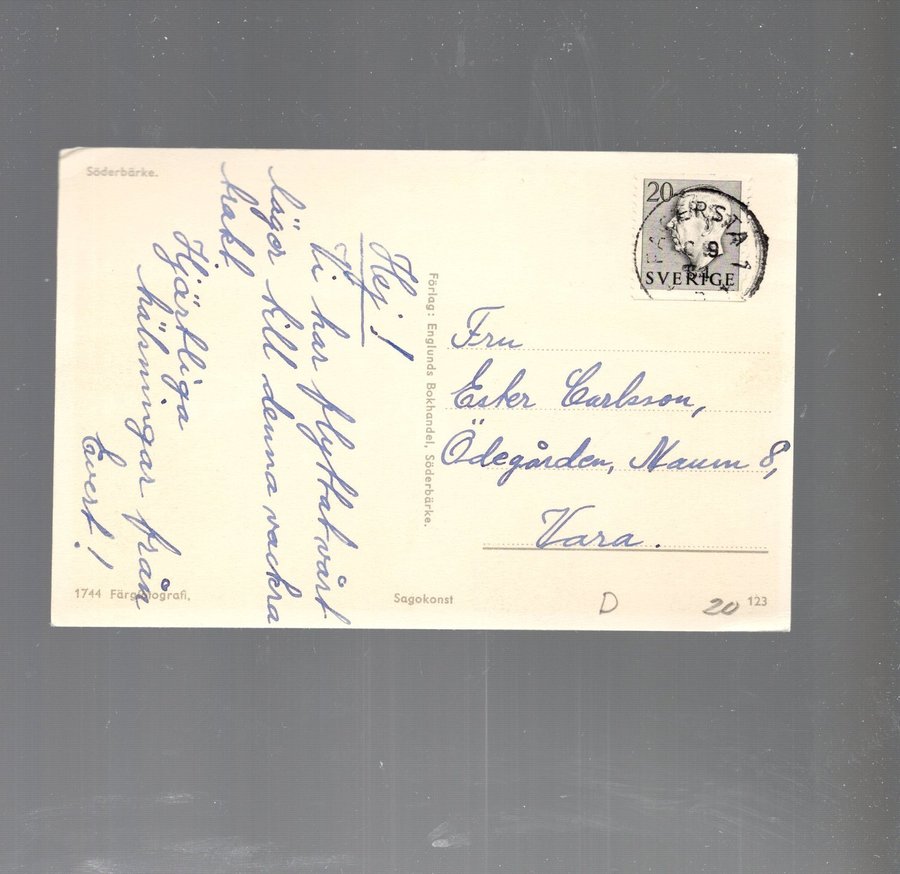 Söderbärke.
Hej!
Vi har flyttat vårt
läger till denna vackra
trakt
Hjärtliga
hälsningar från
Evert!
Förlag: Englunds Bokhandel, Söderbärke.
20
SVERIGE
ERSTA 1
9
Fru
Ester Carlsson,
Ödegården, Naum 8,
Vara.
1744 Färgfotografi,
Sagokonst
D
20
123